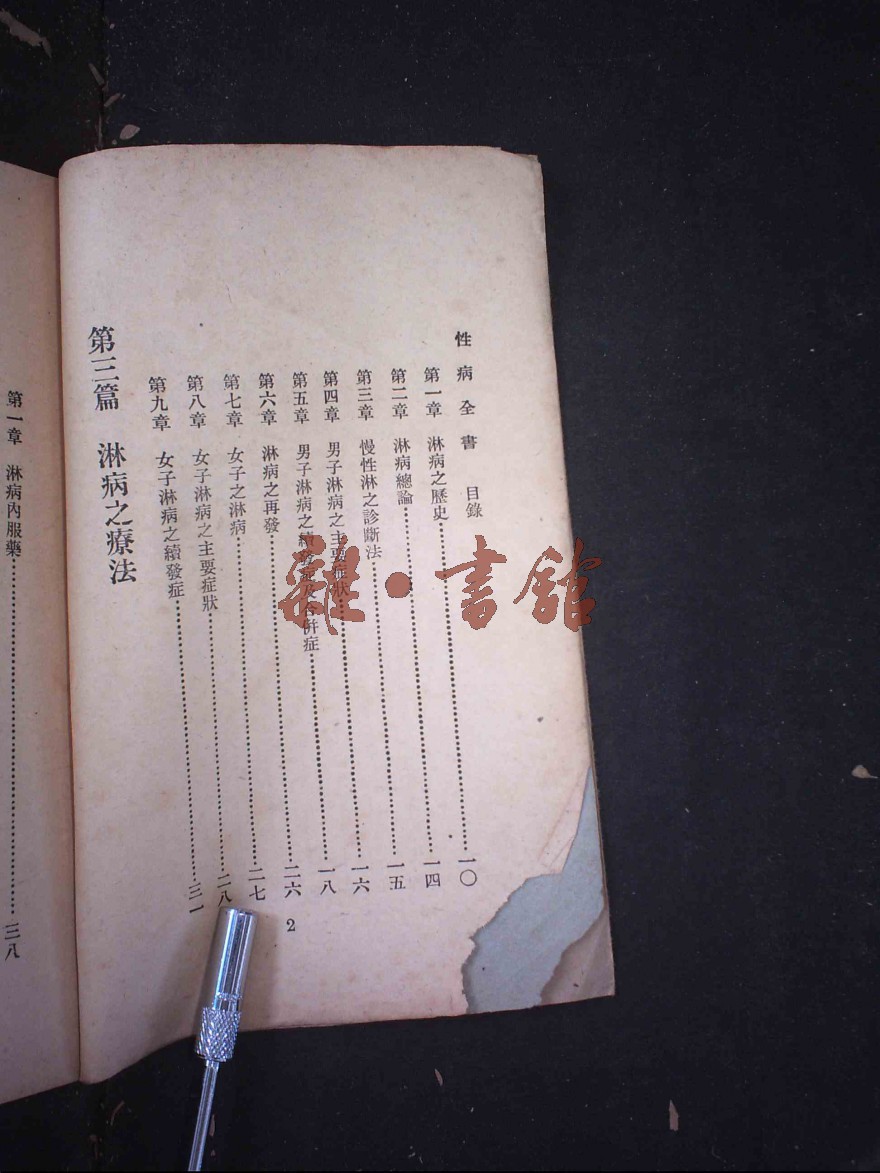 性病全書 目錄
第一章 淋病之歷史……………………一〇
第二章 淋病總論……………………一四
第三章 慢性淋之診斷法……………………一五
第四章 男子淋病之主要症狀……………………一六
第五章 男子淋病之續發症及合併症……………………一八
第六章 淋病之再發……………………二六
第七章 女子之淋病……………………二七
第八章 女子淋病之主要症狀……………………二八
第九章 女子淋病之續發症……………………三一
第三篇 淋病之療法
2
第一章 淋病內服藥……………………三八
雜·書館